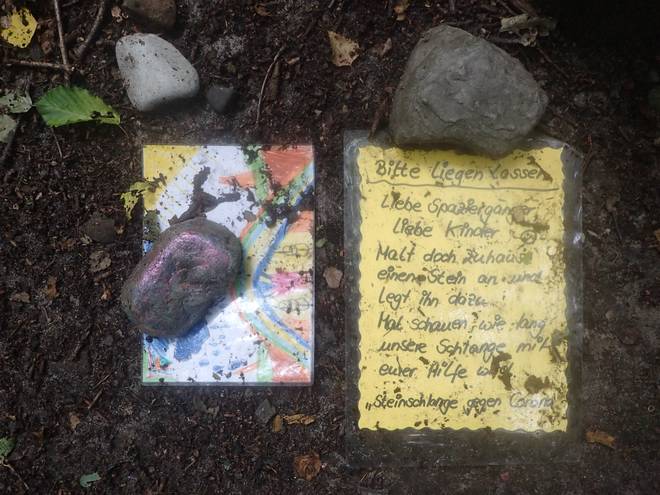 Bitte liegen lassen
Liebe Spaziergänger
liebe Kinder
Malt doch zuhause
einen Stein an und
legt ihn dazu.
Mal schauen, wie lang
unsere Schlange mit
eurer Hilfe wird
„Steinschlange gegen Corona"